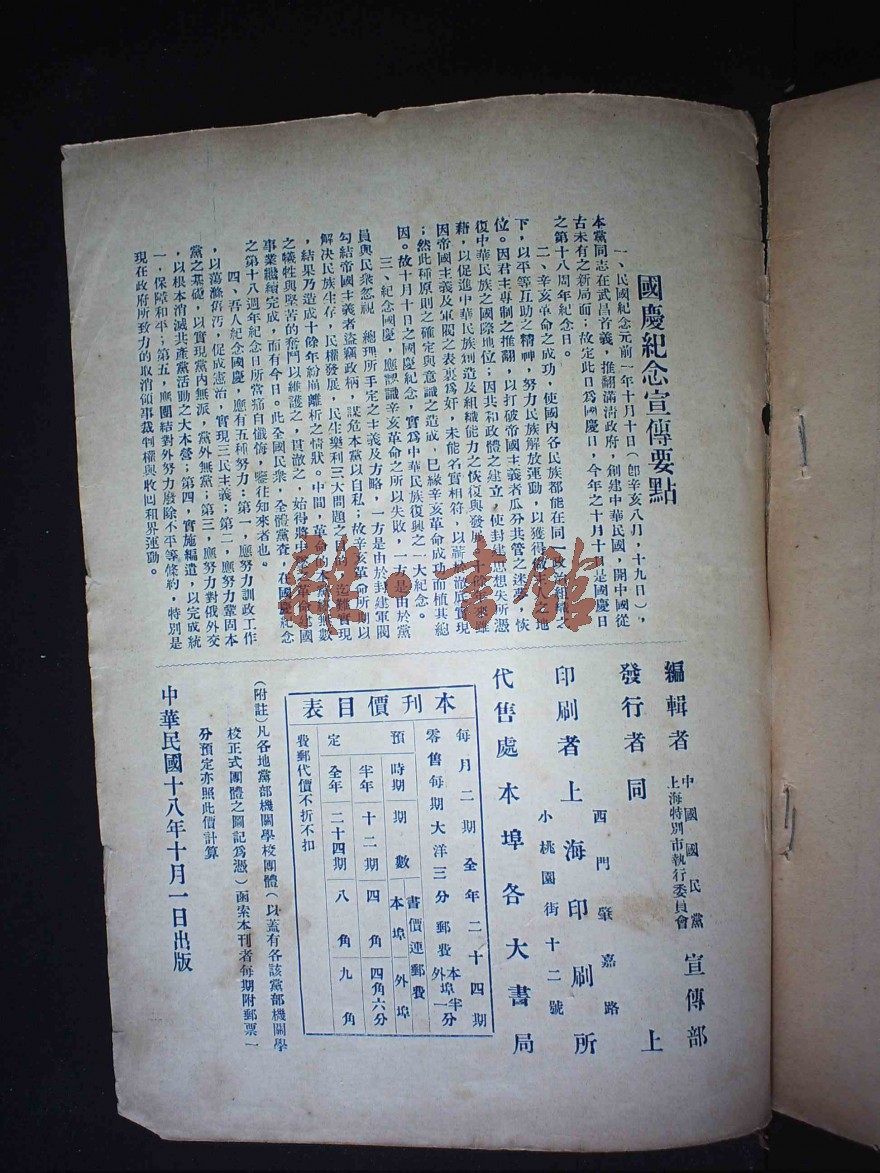 國慶紀念宣傳要點
一、民國紀念元前一年十月十日（卽辛亥八月，十九日），
本黨同志在武昌首義，推翻滿淸政府，創建中華民國，開中國從
古未有之新局面；故定此日爲國慶日，今年之十月十日是國慶日
之第十八周年紀念日。
二、辛亥革命之成功，使國內各民族都能在同一政治組織之
下，以平等互助之精神，努力民族解放運動，以獲得做主人之地
位。因君主專制之推翻，以打破帝國主義者瓜分共管之迷夢，恢
復中華民族之國際地位；因共和政體之建立，使封建思想失所憑
藉，以促進中華民族創造及組織能力之恢復與發展。十餘年來雖
因帝國主義及軍閥之表裏爲奸，未能名實相符，以蘄於澈底實現
；然此種原則之確定與意識之造成，已緣辛亥革命成功而植其總
因。故十月十日之國慶紀念，實爲中華民族復興之一大紀念。
三、紀念國慶，應認識辛亥革命之所以失敗，一方是由於黨
員與民衆忽視 總理所手定之主義及方略，一方是由於封建軍閥
勾結帝國主義者盜竊政柄，謀危本黨以自私；故辛亥革命所期以
解决民族生存，民權發展，民生樂利三大問題之目的，迄難實現
，結果乃造成十餘年紛崩離析之情狀。中間，革命的
之犧牲與堅苦的奮鬥以維護之，貫澈之，始得將中華革命建國
事業繼續完成，而有今日。此全國民衆，全體黨員，在國慶紀念
之第十八週年紀念日所當痛自懺悔，鑒往知來者也。
四、吾人紀念國慶，應有五種努力：第一，應努力訓政工作
，以蕩滌舊汚，促成憲治，實現三民主義；第二，應努力鞏固本
黨之基礎，以實現黨內無派，黨外無黨；第三，應努力對俄外交
，以根本消滅共產黨活動之大本營；第四，實施編遣，以完成統
一，保障和平；第五，應團結對外努力廢除不平等條約，特別是
現在政府所致力的取消領事裁判權與收囘租界運動。
編輯者 中國國民黨上海特別市執行委員會 宣傳部
發行者 同上
西門肇嘉路
印刷者 上海印刷所
小桃園街十二號
代售處 本埠各大書局
本刊價目表
每月二期 全年二十四期
零售每期大洋三分 郵費 本埠半分 外埠一分
預定 時期 期數 書價連郵費 本埠 外埠
半年 十二期 四角 四角六分
全年 二十四期 八角 九角
費郵代價不折不扣
（附註）凡各地黨部機關學校團體（以蓋有各該黨部機關學
校正式團體之圖記爲憑）函索本刊者每期附郵票一
分預定亦照此價計算
中華民國十八年十月一日出版
雜·書館